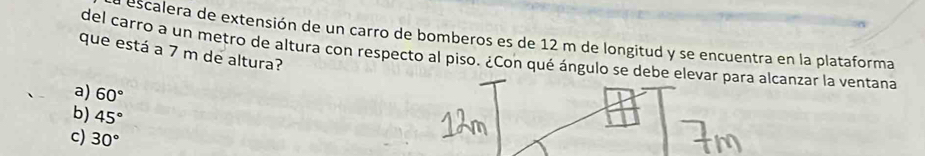 escalera de extensión de un carro de bomberos es de 12 m de longitud y se encuentra en la plataforma
del carro a un metro de altura con respecto al piso. ¿Con qué ángulo se debe elevar para alcanzar la ventana
que está a 7 m de altura?
a) 60°
b) 45°
c) 30°
12m
7m